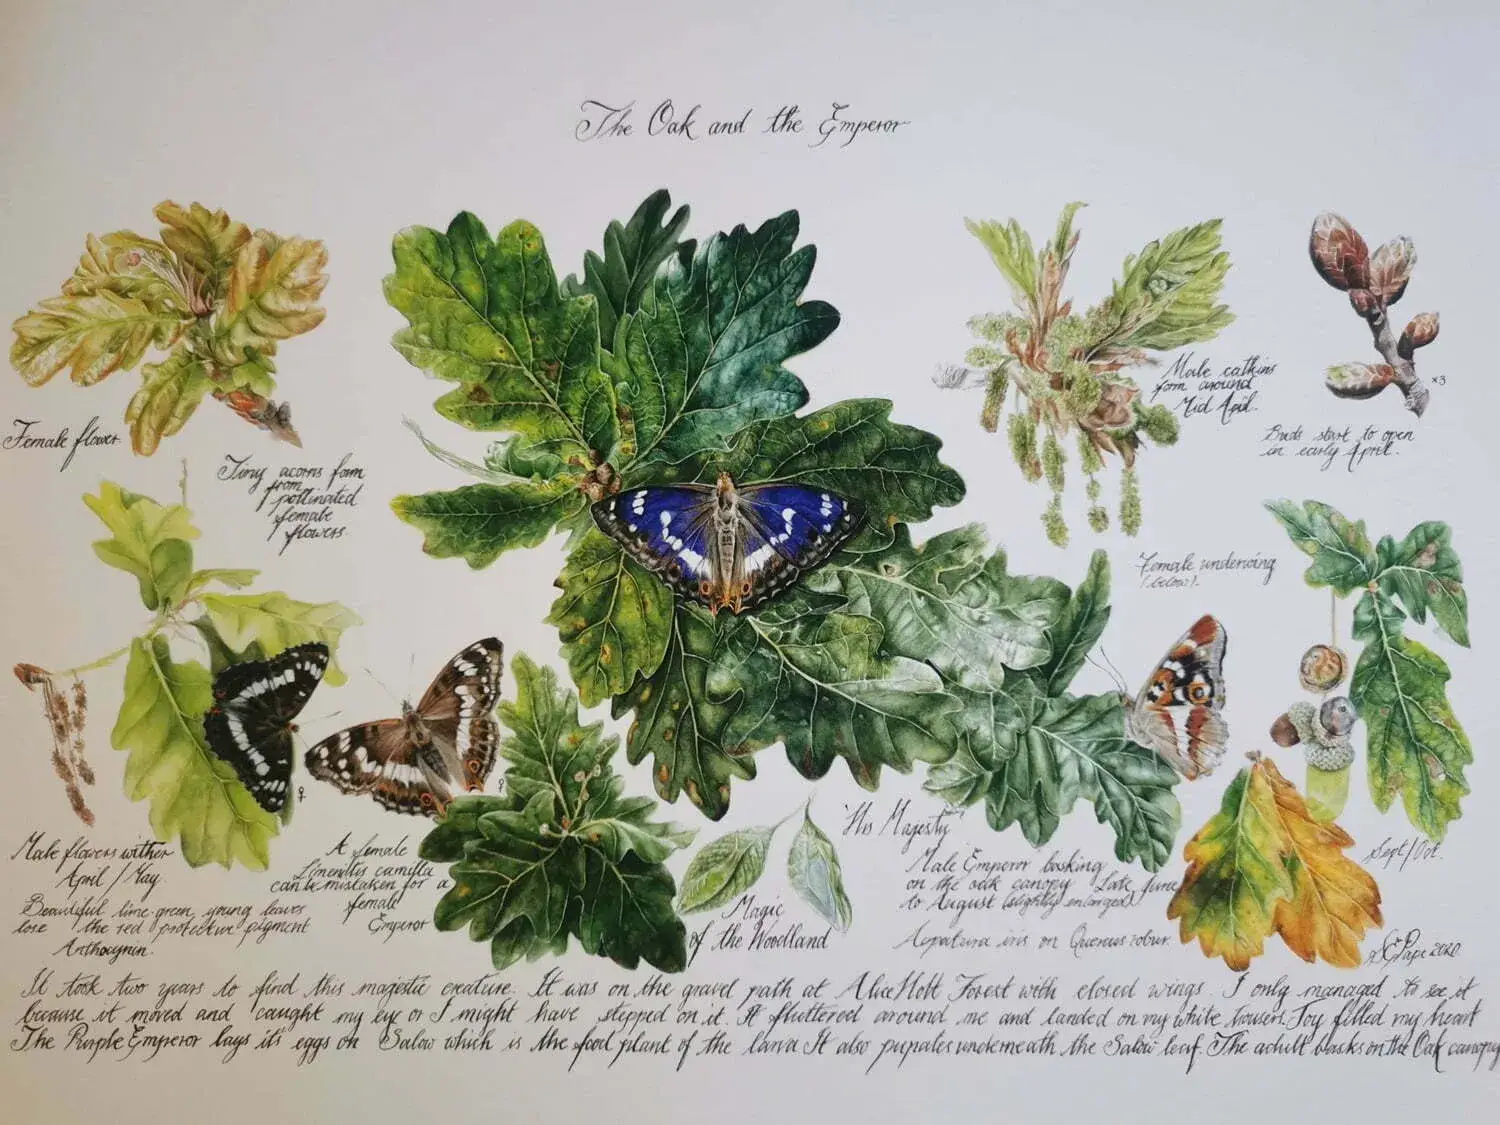 The Oak and the Emperor
Female flower
Tiny acorns form
from
pollinated
female
flowers.
Male catkins
form around
Mid April.
x3
Buds start to open
in early April.
Female underwing
(below).
♀
♀
Male flowers wither
April / May.
Beautiful lime-green young leaves
lose the red protective pigment
Anthocynin.
A female
Limenitis camilla
can be mistaken for a
female
Emperor
Magic
of the Woodland
'His Majesty'
Male Emperor basking
on the oak canopy Late June
to August (slightly enlarged)
Aapatura iris on Quercus robur.
Sept/Oct.
Pape 2020.
It took two years to find this majestic creature. It was on the gravel path at Alice Holt Forest with closed wings. I only managed to see it
because it moved and caught my eye or I might have stepped on it. It fluttered around me and landed on my white trousers. Joy filled my heart
The Purple Emperor lays it's eggs on Salow which is the food plant of the larva It also pupates underneath the Salow leaf. The adult basks on the Oak canopy